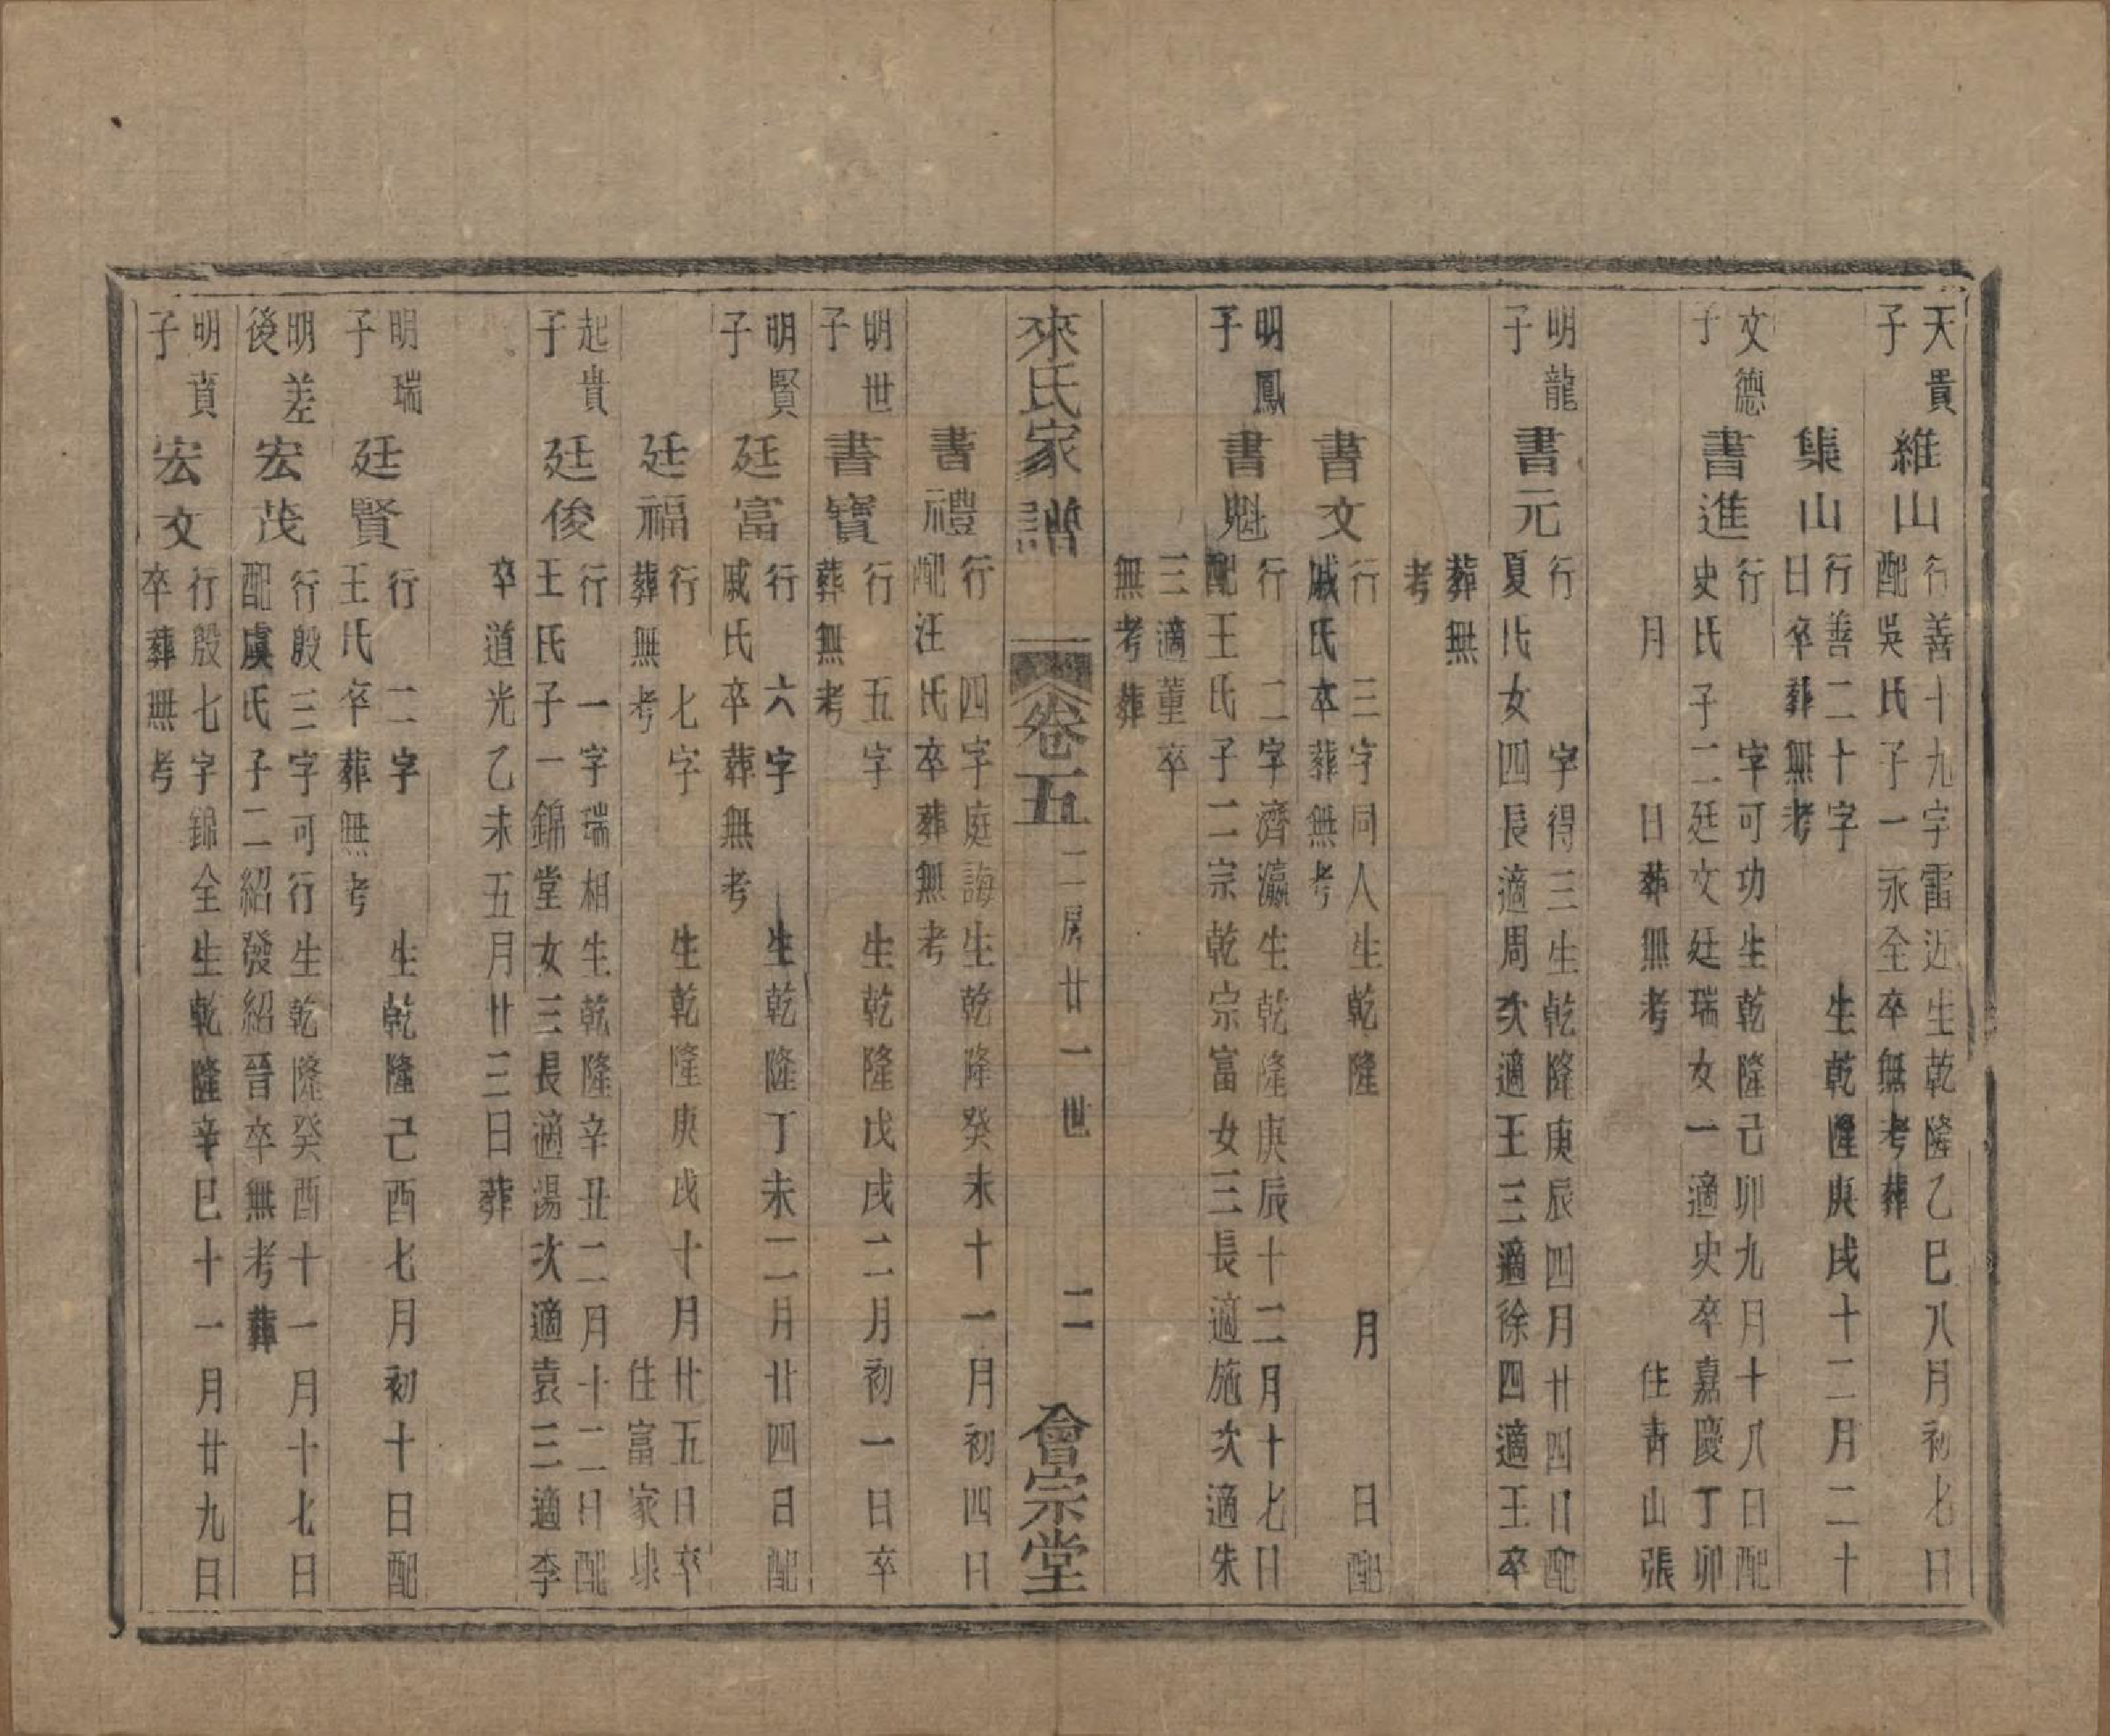 天貴
子
維山
行善十九字雷近生乾隆乙巳八月初七日
配吳氏子一永全卒無考葬
集山
行善二十字 生乾隆庚戌十二月二十
日卒葬無考
文德
子
書進
行 字可功生乾隆己卯九月十八日配
史氏子二廷文廷瑞女一適史卒嘉慶丁卯
月 日葬無考 住青山張
明龍
子
書元
行 字得三生乾隆庚辰四月廿四日配
夏氏女四長適周次適王三適徐四適王卒
葬無
考
書文
行 三字同人生乾隆 月 日配
戚氏卒葬無考
明鳳
子
書魁
行 二字濟瀛生乾隆庚辰十二月十七日
配王氏子二宗乾宗富女三長適施次適朱
三適董卒
無考葬
來氏家譜 卷五 二房廿一世 二 會宗堂
書禮
行 四字庭誨生乾隆癸未十一月初四日
配汪氏卒葬無考
明世
子
書寶
行 五字 生乾隆戊戌二月初一日卒
葬無考
明賢
子
廷富
行 六字 生乾隆丁未二月廿四日配
戚氏卒葬無考
廷福
行 七字 生乾隆庚戌十月廿五日卒
葬無考 住富家
起貴
子
廷俊
行 一字瑞相生乾隆辛丑二月十二日配
王氏子一錦堂女三長適湯次適袁三適李
卒道光乙未五月廿三日葬
明瑞
子
廷賢
行 二字 生乾隆己酉七月初十日配
王氏卒葬無考
明差
後
宏茂
行殷三字可行生乾隆癸酉十一月十七日
配虞氏子二紹發紹晉卒無考葬
明賁
子
宏文
行殷七字錦全生乾隆辛巳十一月廿九日
卒葬無考